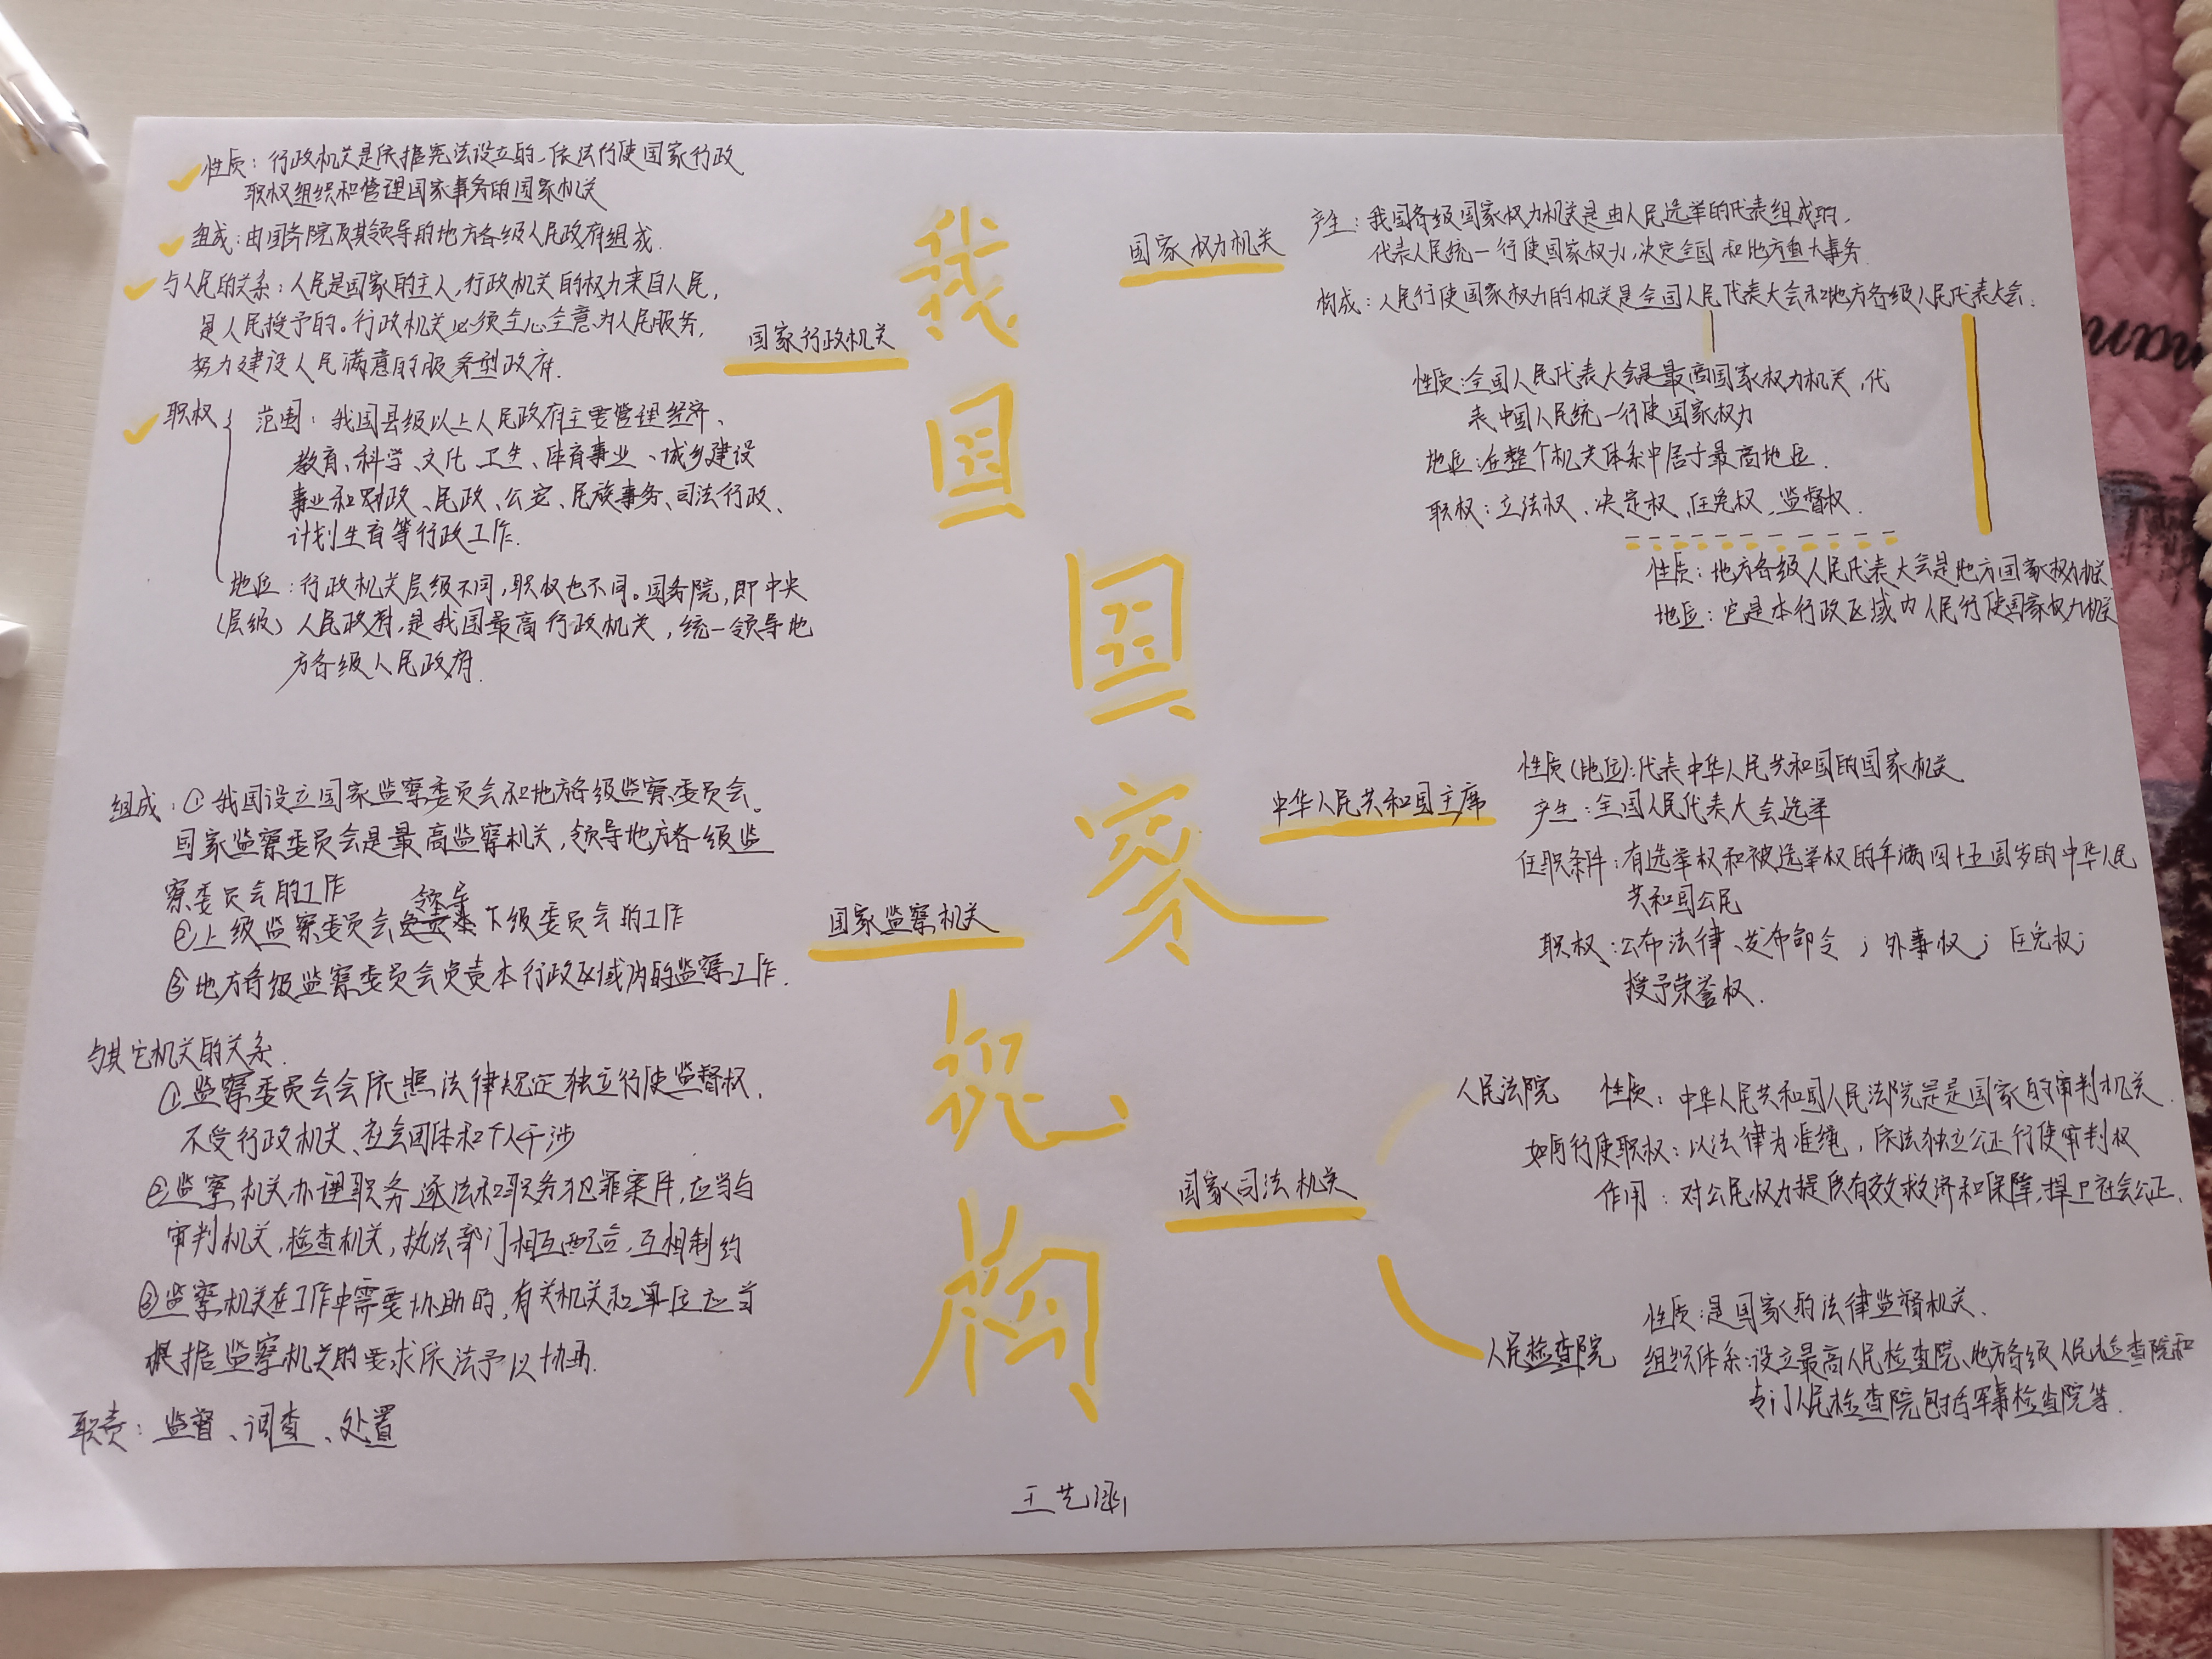 我国国家机构
国家行政机关
性质：行政机关是依据宪法设立的、依法行使国家行政
职权组织和管理国家事务的国家机关
组成：由国务院及其领导的地方各级人民政府组成.
与人民的关系：人民是国家的主人,行政机关的权力来自人民,
是人民授予的。行政机关必须全心全意为人民服务,
努力建设人民满意的服务型政府.
职权
范围：我国县级以上人民政府主要管理经济、
教育、科学、文化、卫生、体育事业、城乡建设
事业和财政、民政、公安、民族事务、司法行政、
计划生育等行政工作.
地位：行政机关层级不同,职权也不同。国务院,即中央
(层级) 人民政府,是我国最高行政机关,统一领导地
方各级人民政府.
国家监察机关
组成：①我国设立国家监察委员会和地方各级监察委员会。
国家监察委员会是最高监察机关,领导地方各级监
察委员会的工作
②上级监察委员会领导下级委员会的工作
③地方各级监察委员会负责本行政区域内的监察工作.
与其它机关的关系.
①监察委员会会依照法律规定独立行使监督权.
不受行政机关、社会团体和个人干涉
②监察机关办理职务违法和职务犯罪案件,应当与
审判机关,检查机关,执法部门相互配合,互相制约
③监察机关在工作中需要协助的,有关机关和单位应当
根据监察机关的要求依法予以协助.
职责：监督、调查、处置
国家权力机关
产生：我国各级国家权力机关是由人民选举的代表组成的,
代表人民统一行使国家权力,决定全国和地方重大事务.
构成：人民行使国家权力的机关是全国人民代表大会和地方各级人民代表大会.
性质：全国人民代表大会是最高国家权力机关,代
表中国人民统一行使国家权力
地位：在整个机关体系中居于最高地位.
职权：立法权、决定权、任免权、监督权.
性质：地方各级人民代表大会是地方国家权力机关
地位：它是本行政区域内人民行使国家权力机关
中华人民共和国主席
性质(地位)：代表中华人民共和国的国家机关
产生：全国人民代表大会选举
任职条件：有选举权和被选举权的年满四十五周岁的中华人民
共和国公民
职权：公布法律、发布命令；外事权；任免权；
授予荣誉权.
国家司法机关
人民法院 性质：中华人民共和国人民法院是是国家的审判机关.
如何行使职权：以法律为准绳,依法独立公正行使审判权
作用：对公民权力提供有效救济和保障,捍卫社会公正.
人民检查院
性质：是国家的法律监督机关、
组织体系：设立最高人民检查院、地方各级人民检查院和
专门人民检查院包括军事检查院等.
王艺涵